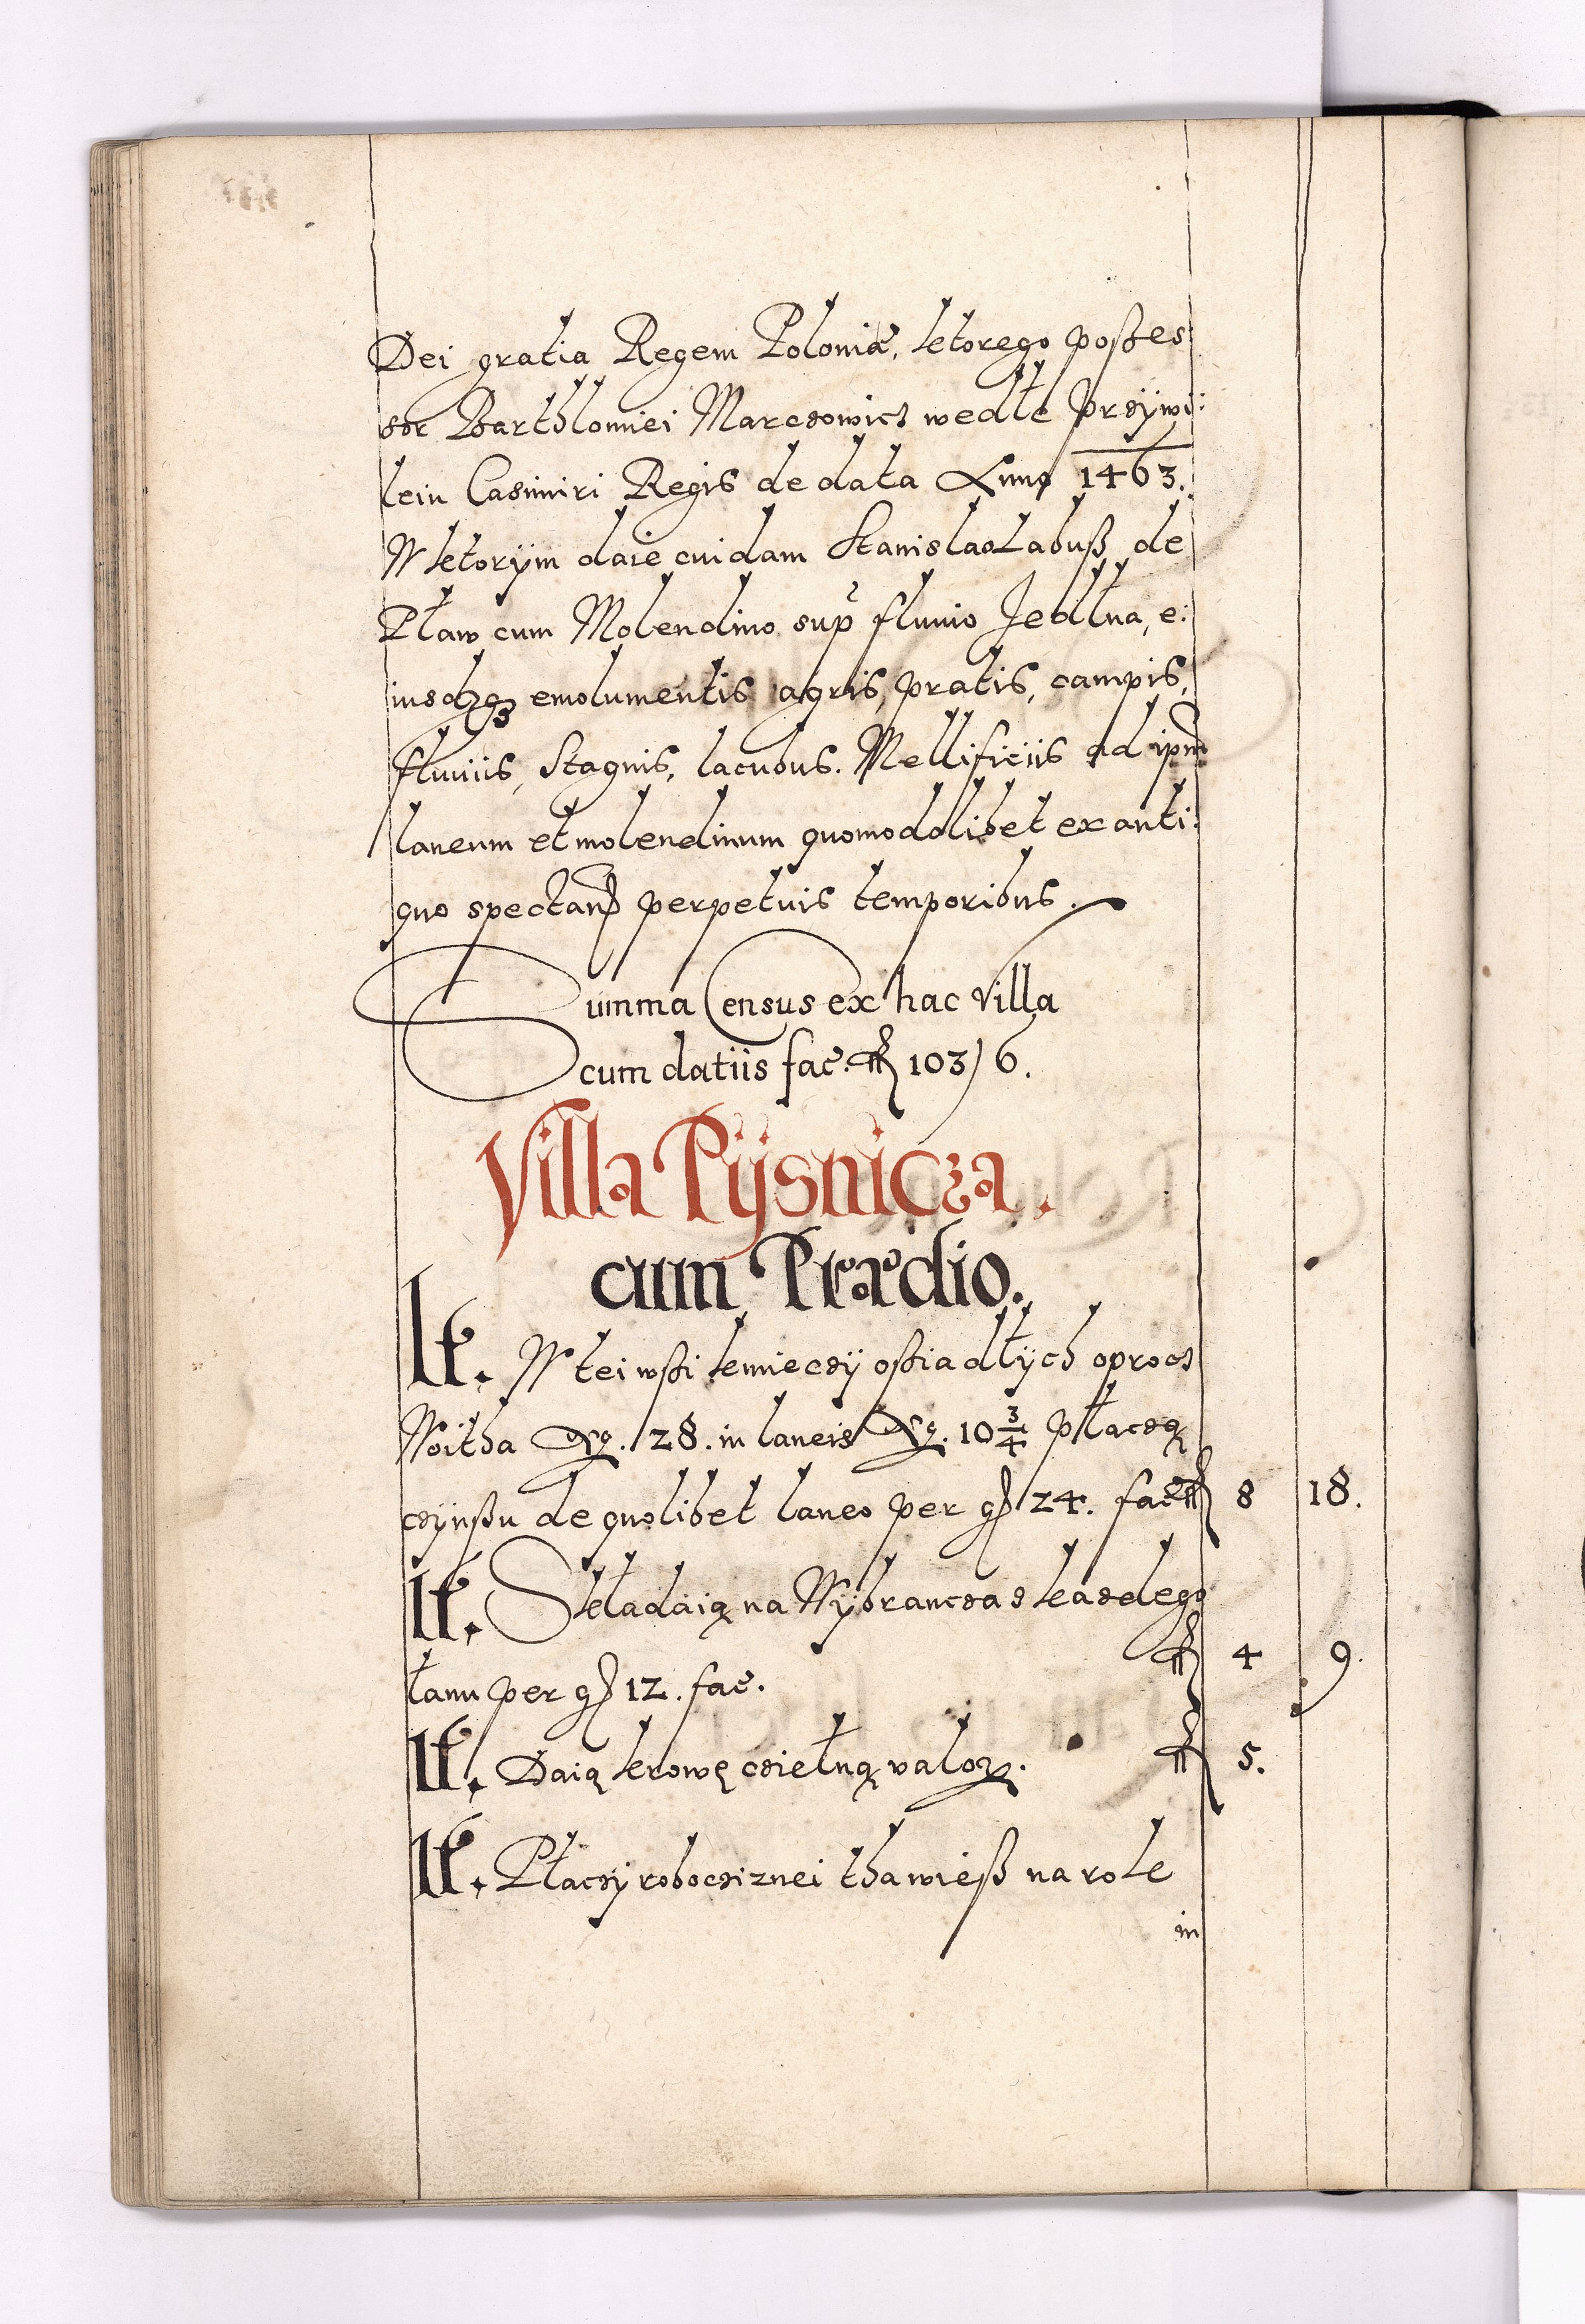 Dei gratia Regem Poloniæ, ktorego poßes:
sor Barthlomiei Marczowicz wedle Przÿwi:
lein Casimiri Regis de data Anno 1463.
W ktorÿm daie cuidam Stanislao Labuß de
Pław cum Molendino sup fluuio Jedłna, e:
iusdzqз emolumentis agris, pratis, campis,
fluuiis, Stagnis, lacubus. Mellificiis ad ipm
laneum et molendinum quomodolibet ex anti:
quo spectand perpetuis temporibus.
Summa Census ex hac villa
cum datiis fac. fl 103/6.
Villa Pÿsnicza.
cum Prædio.
It. W tei wßi kmieczÿ oßiadłÿch oprocz
Woitha No. 28. in laneis No. 10 3/4 płaczą
czÿnßu de quolibet laneo per gr 24. fac fl 8 18.
It. Składaią na Wÿbrancza z kazdego
łanu per gr 12. fac. fl 4 9.
It. Daią krowę czielną valoz. fl 5.
It. Płaczÿ robocziznei tha wießnarok
in